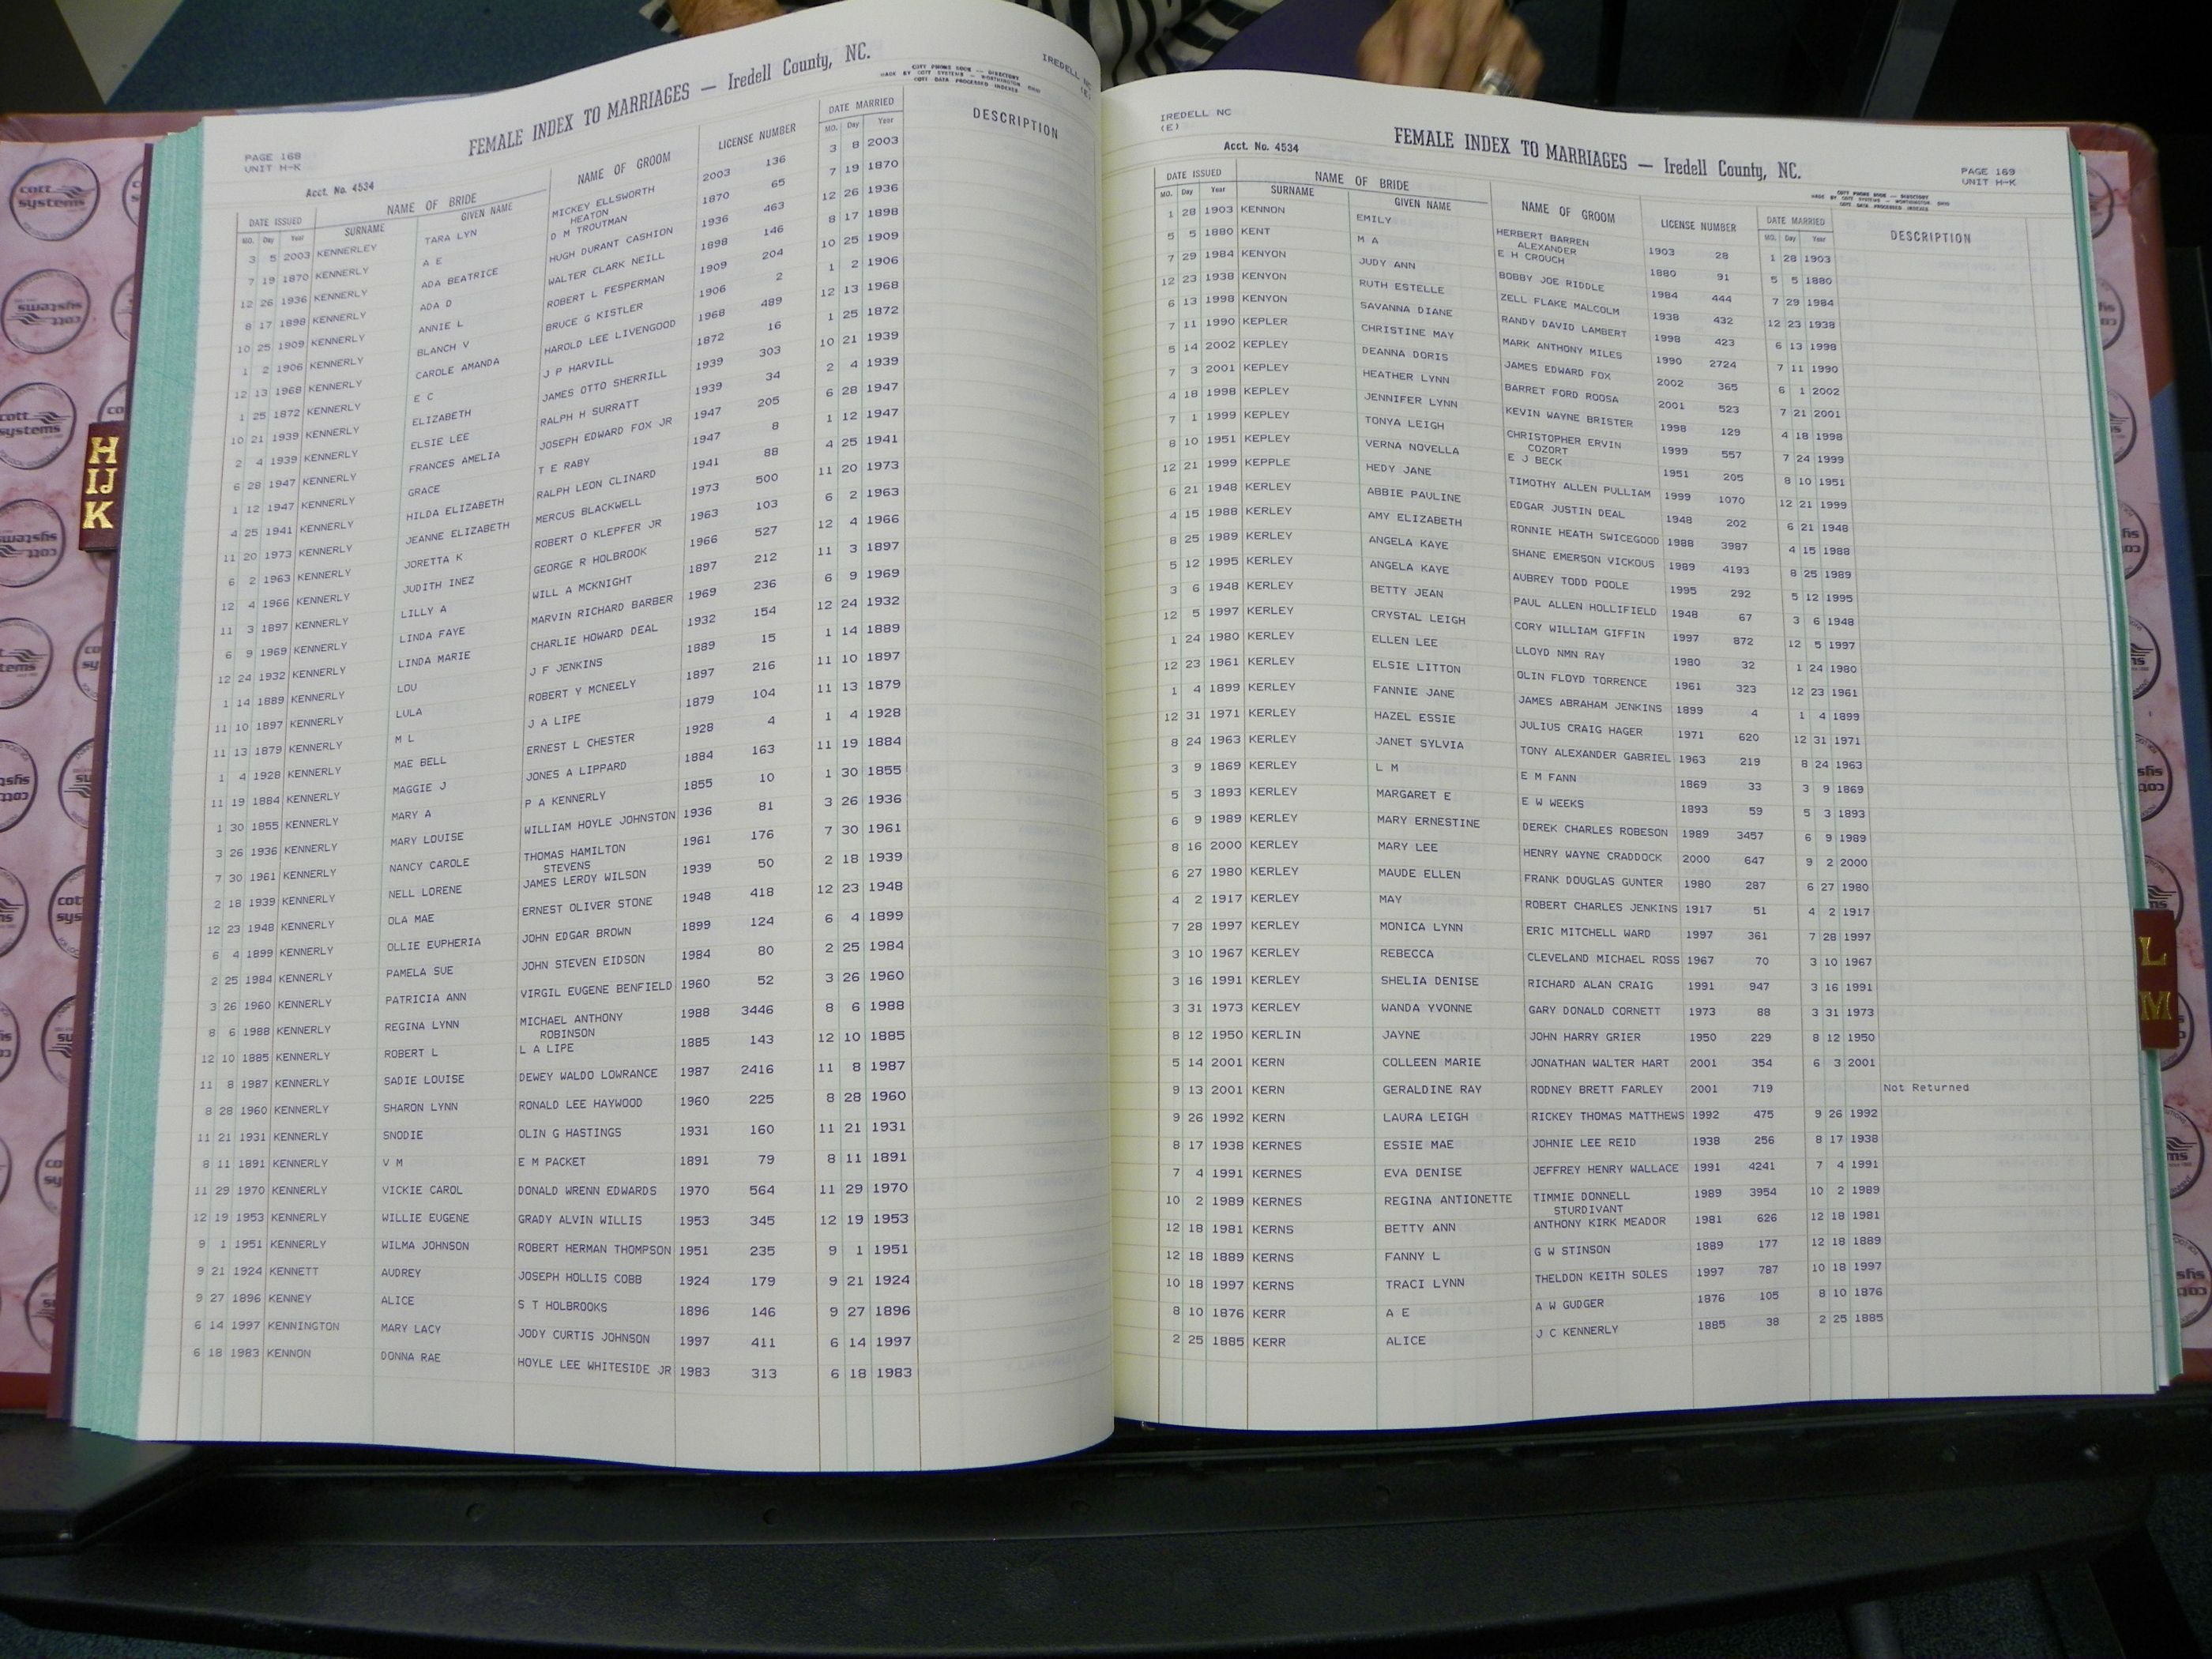 FEMALE INDEX TO MARRIAGES — Iredell County, NC.
PAGE 168
UNIT H-K
Acct. No. 4534
COTT PHONE BOOK — DIRECTORY
MADE BY COTT SYSTEMS — WORTHINGTON OHIO
COTT DATA PROCESSED INDEXES
IREDELL NC
(E)
DATE ISSUED NAME OF BRIDE NAME OF GROOM LICENSE NUMBER DATE MARRIED DESCRIPTION
MO. Day Year SURNAME GIVEN NAME MO. Day Year
3 5 2003 KENNERLEY TARA LYN MICKEY ELLSWORTH 2003 136 3 8 2003
HEATON
7 19 1870 KENNERLY A E D M TROUTMAN 1870 65 7 19 1870
12 26 1936 KENNERLY ADA BEATRICE HUGH DURANT CASHION 1936 463 12 26 1936
8 17 1898 KENNERLY ADA D WALTER CLARK NEILL 1898 146 8 17 1898
10 25 1909 KENNERLY ANNIE L ROBERT L FESPERMAN 1909 204 10 25 1909
1 2 1906 KENNERLY BLANCH V BRUCE G KISTLER 1906 2 1 2 1906
12 13 1968 KENNERLY CAROLE AMANDA HAROLD LEE LIVENGOOD 1968 489 12 13 1968
1 25 1872 KENNERLY E C J P HARVILL 1872 16 1 25 1872
10 21 1939 KENNERLY ELIZABETH JAMES OTTO SHERRILL 1939 303 10 21 1939
2 4 1939 KENNERLY ELSIE LEE RALPH H SURRATT 1939 34 2 4 1939
6 28 1947 KENNERLY FRANCES AMELIA JOSEPH EDWARD FOX JR 1947 205 6 28 1947
1 12 1947 KENNERLY GRACE T E RABY 1947 8 1 12 1947
4 25 1941 KENNERLY HILDA ELIZABETH RALPH LEON CLINARD 1941 88 4 25 1941
11 20 1973 KENNERLY JEANNE ELIZABETH MERCUS BLACKWELL 1973 500 11 20 1973
6 2 1963 KENNERLY JORETTA K ROBERT O KLEPFER JR 1963 103 6 2 1963
12 4 1966 KENNERLY JUDITH INEZ GEORGE R HOLBROOK 1966 527 12 4 1966
11 3 1897 KENNERLY LILLY A WILL A MCKNIGHT 1897 212 11 3 1897
6 9 1969 KENNERLY LINDA FAYE MARVIN RICHARD BARBER 1969 236 6 9 1969
12 24 1932 KENNERLY LINDA MARIE CHARLIE HOWARD DEAL 1932 154 12 24 1932
1 14 1889 KENNERLY LOU J F JENKINS 1889 15 1 14 1889
11 10 1897 KENNERLY LULA ROBERT Y MCNEELY 1897 216 11 10 1897
11 13 1879 KENNERLY M L J A LIPE 1879 104 11 13 1879
1 4 1928 KENNERLY MAE BELL ERNEST L CHESTER 1928 4 1 4 1928
11 19 1884 KENNERLY MAGGIE J JONES A LIPPARD 1884 163 11 19 1884
1 30 1855 KENNERLY MARY A P A KENNERLY 1855 10 1 30 1855
3 26 1936 KENNERLY MARY LOUISE WILLIAM HOYLE JOHNSTON 1936 81 3 26 1936
7 30 1961 KENNERLY NANCY CAROLE THOMAS HAMILTON 1961 176 7 30 1961
STEVENS
2 18 1939 KENNERLY NELL LORENE JAMES LEROY WILSON 1939 50 2 18 1939
12 23 1948 KENNERLY OLA MAE ERNEST OLIVER STONE 1948 418 12 23 1948
6 4 1899 KENNERLY OLLIE EUPHERIA JOHN EDGAR BROWN 1899 124 6 4 1899
2 25 1984 KENNERLY PAMELA SUE JOHN STEVEN EIDSON 1984 80 2 25 1984
3 26 1960 KENNERLY PATRICIA ANN VIRGIL EUGENE BENFIELD 1960 52 3 26 1960
8 6 1988 KENNERLY REGINA LYNN MICHAEL ANTHONY 1988 3446 8 6 1988
ROBINSON
12 10 1885 KENNERLY ROBERT L L A LIPE 1885 143 12 10 1885
11 8 1987 KENNERLY SADIE LOUISE DEWEY WALDO LOWRANCE 1987 2416 11 8 1987
8 28 1960 KENNERLY SHARON LYNN RONALD LEE HAYWOOD 1960 225 8 28 1960
11 21 1931 KENNERLY SNODIE OLIN G HASTINGS 1931 160 11 21 1931
8 11 1891 KENNERLY V M E M PACKET 1891 79 8 11 1891
11 29 1970 KENNERLY VICKIE CAROL DONALD WRENN EDWARDS 1970 564 11 29 1970
12 19 1953 KENNERLY WILLIE EUGENE GRADY ALVIN WILLIS 1953 345 12 19 1953
9 1 1951 KENNERLY WILMA JOHNSON ROBERT HERMAN THOMPSON 1951 235 9 1 1951
9 21 1924 KENNETT AUDREY JOSEPH HOLLIS COBB 1924 179 9 21 1924
9 27 1896 KENNEY ALICE S T HOLBROOKS 1896 146 9 27 1896
6 14 1997 KENNINGTON MARY LACY JODY CURTIS JOHNSON 1997 411 6 14 1997
6 18 1983 KENNON DONNA RAE HOYLE LEE WHITESIDE JR 1983 313 6 18 1983
IREDELL NC
(E)
Acct. No. 4534
FEMALE INDEX TO MARRIAGES — Iredell County, NC.
PAGE 169
UNIT H-K
COTT PHONE BOOK — DIRECTORY
MADE BY COTT SYSTEMS — WORTHINGTON OHIO
COTT DATA PROCESSED INDEXES
DATE ISSUED NAME OF BRIDE NAME OF GROOM LICENSE NUMBER DATE MARRIED DESCRIPTION
MO. Day Year SURNAME GIVEN NAME MO. Day Year
1 28 1903 KENNON EMILY HERBERT BARREN 1903 28 1 28 1903
ALEXANDER
5 5 1880 KENT M A E H CROUCH 1880 91 5 5 1880
7 29 1984 KENYON JUDY ANN BOBBY JOE RIDDLE 1984 444 7 29 1984
12 23 1938 KENYON RUTH ESTELLE ZELL FLAKE MALCOLM 1938 432 12 23 1938
6 13 1998 KENYON SAVANNA DIANE RANDY DAVID LAMBERT 1998 423 6 13 1998
7 11 1990 KEPLER CHRISTINE MAY MARK ANTHONY MILES 1990 2724 7 11 1990
5 14 2002 KEPLEY DEANNA DORIS JAMES EDWARD FOX 2002 365 6 1 2002
7 3 2001 KEPLEY HEATHER LYNN BARRET FORD ROOSA 2001 523 7 21 2001
4 18 1998 KEPLEY JENNIFER LYNN KEVIN WAYNE BRISTER 1998 129 4 18 1998
7 1 1999 KEPLEY TONYA LEIGH CHRISTOPHER ERVIN 1999 557 7 24 1999
COZORT
8 10 1951 KEPLEY VERNA NOVELLA E J BECK 1951 205 8 10 1951
12 21 1999 KEPPLE HEDY JANE TIMOTHY ALLEN PULLIAM 1999 1070 12 21 1999
6 21 1948 KERLEY ABBIE PAULINE EDGAR JUSTIN DEAL 1948 202 6 21 1948
4 15 1988 KERLEY AMY ELIZABETH RONNIE HEATH SWICEGOOD 1988 3987 4 15 1988
8 25 1989 KERLEY ANGELA KAYE SHANE EMERSON VICKOUS 1989 4193 8 25 1989
5 12 1995 KERLEY ANGELA KAYE AUBREY TODD POOLE 1995 292 5 12 1995
3 6 1948 KERLEY BETTY JEAN PAUL ALLEN HOLLIFIELD 1948 67 3 6 1948
12 5 1997 KERLEY CRYSTAL LEIGH CORY WILLIAM GIFFIN 1997 872 12 5 1997
1 24 1980 KERLEY ELLEN LEE LLOYD NMN RAY 1980 32 1 24 1980
12 23 1961 KERLEY ELSIE LITTON OLIN FLOYD TORRENCE 1961 323 12 23 1961
1 4 1899 KERLEY FANNIE JANE JAMES ABRAHAM JENKINS 1899 4 1 4 1899
12 31 1971 KERLEY HAZEL ESSIE JULIUS CRAIG HAGER 1971 620 12 31 1971
8 24 1963 KERLEY JANET SYLVIA TONY ALEXANDER GABRIEL 1963 219 8 24 1963
3 9 1869 KERLEY L M E M FANN 1869 33 3 9 1869
5 3 1893 KERLEY MARGARET E E W WEEKS 1893 59 5 3 1893
6 9 1989 KERLEY MARY ERNESTINE DEREK CHARLES ROBESON 1989 3457 6 9 1989
8 16 2000 KERLEY MARY LEE HENRY WAYNE CRADDOCK 2000 647 9 2 2000
6 27 1980 KERLEY MAUDE ELLEN FRANK DOUGLAS GUNTER 1980 287 6 27 1980
4 2 1917 KERLEY MAY ROBERT CHARLES JENKINS 1917 51 4 2 1917
7 28 1997 KERLEY MONICA LYNN ERIC MITCHELL WARD 1997 361 7 28 1997
3 10 1967 KERLEY REBECCA CLEVELAND MICHAEL ROSS 1967 70 3 10 1967
3 16 1991 KERLEY SHELIA DENISE RICHARD ALAN CRAIG 1991 947 3 16 1991
3 31 1973 KERLEY WANDA YVONNE GARY DONALD CORNETT 1973 88 3 31 1973
8 12 1950 KERLIN JAYNE JOHN HARRY GRIER 1950 229 8 12 1950
5 14 2001 KERN COLLEEN MARIE JONATHAN WALTER HART 2001 354 6 3 2001
9 13 2001 KERN GERALDINE RAY RODNEY BRETT FARLEY 2001 719 Not Returned
9 26 1992 KERN LAURA LEIGH RICKEY THOMAS MATTHEWS 1992 475 9 26 1992
8 17 1938 KERNES ESSIE MAE JOHNIE LEE REID 1938 256 8 17 1938
7 4 1991 KERNES EVA DENISE JEFFREY HENRY WALLACE 1991 4241 7 4 1991
10 2 1989 KERNES REGINA ANTIONETTE TIMMIE DONNELL 1989 3954 10 2 1989
STURDIVANT
12 18 1981 KERNS BETTY ANN ANTHONY KIRK MEADOR 1981 626 12 18 1981
12 18 1889 KERNS FANNY L G W STINSON 1889 177 12 18 1889
10 18 1997 KERNS TRACI LYNN THELDON KEITH SOLES 1997 787 10 18 1997
8 10 1876 KERR A E A W GUDGER 1876 105 8 10 1876
2 25 1885 KERR ALICE J C KENNERLY 1885 38 2 25 1885
H
IJ
K
L
M
cott
systems